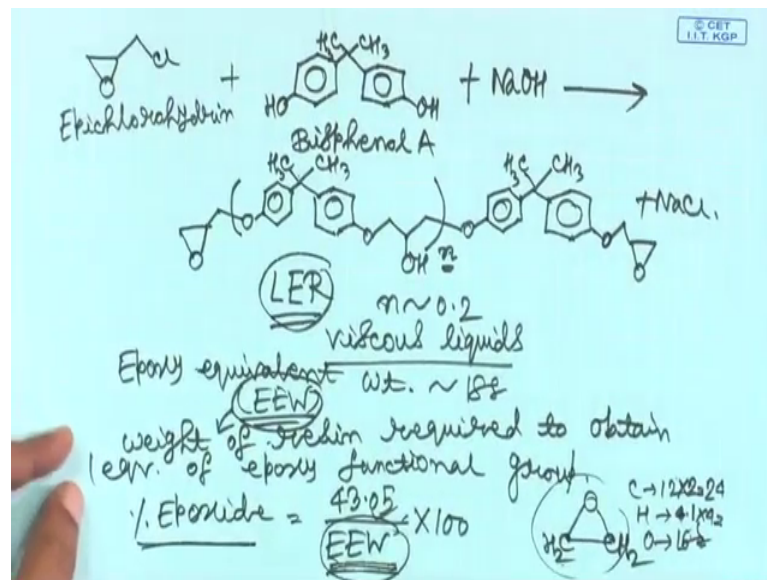 © CET
I.I.T. KGP
Cl
O
Epichlorohydrin
+
H₃C CH₃
HO OH
Bisphenol A
+ NaOH →
H₃C CH₃ H₃C CH₃
O ( O O OH )n O O O
+ NaCl.
LER n ~ 0.2
viscous liquids
Epoxy equivalent wt. ~ 188
(EEW)
weight of resin required to obtain
1 eqv. of epoxy functional group.
% Epoxide = 43.05 / EEW × 100
O
H₂C CH₂
C → 12×2=24